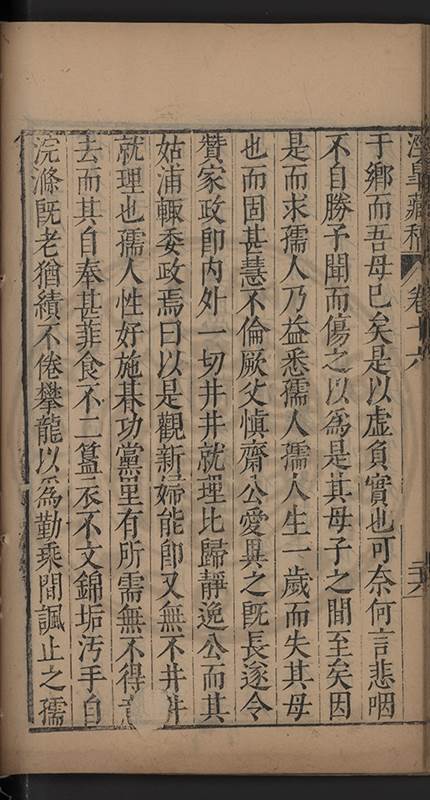 涇臯藏稿 卷十六
于鄉而吾母已矣是以虚負實也可奈何言悲咽
不自勝予聞而傷之以爲是其母子之間至矣因
是而求孺人乃益悉孺人孺人生一歲而失其母
也而固甚慧不倫厥父慎齋公愛異之旣長遂令
贊家政卽内外一切井井就理比歸靜逸公而其
姑浦輙委政焉曰以是觀新婦能卽又無不井井
就理也孺人性好施朞功黨里有所需無不得
去而其自奉甚菲食不二簋衣不文錦垢汚手自
浣滌旣老猶績不倦攀龍以爲勤乘間諷止之孺